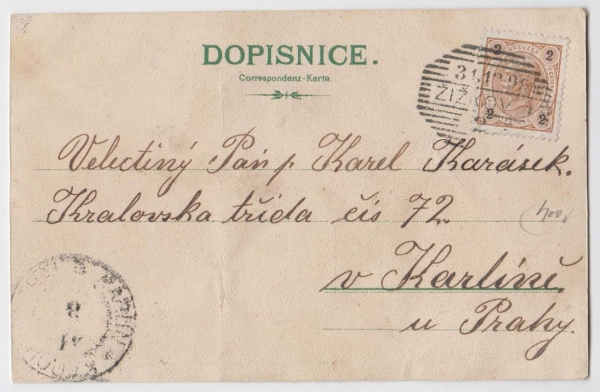 DOPISNICE.
Correspondenz-Karte.
2 KREUZER 2
31.10.98
ŽIŽK
2 2
Velectiný Pán p. Karel Karásek.
Kralovska třída čís 72.
v Karlíně.
u Prahy.
8